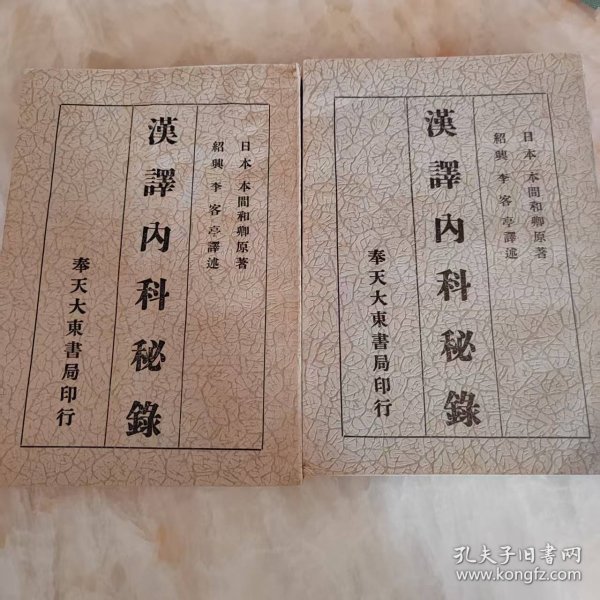 日本 本間和卿原著
紹興 李客亭譯述
漢譯內科秘錄
奉天大東書局印行
日本 本間和卿原著
紹興 李客亭譯述
漢譯內科秘錄
奉天大東書局印行
孔夫子旧书网
www.kongfz.com